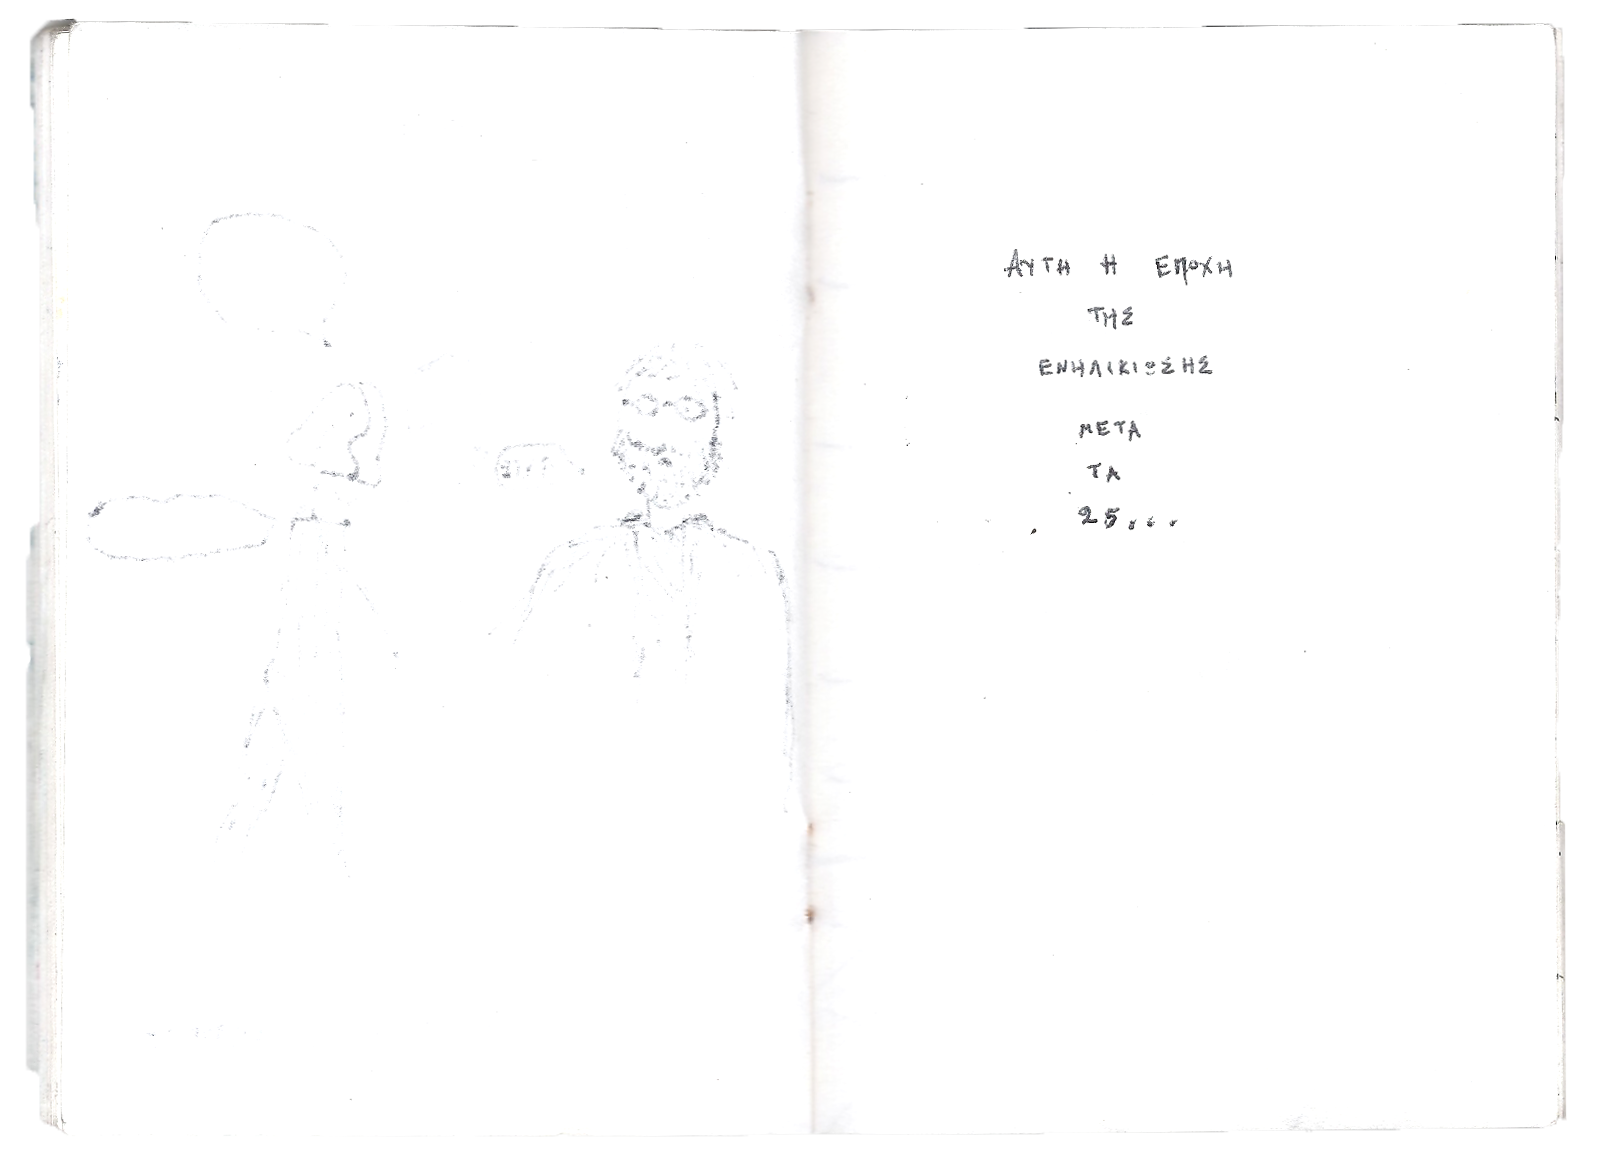 ΑΥΤΗ Η ΕΠΟΧΗ
ΤΗΣ
ΕΝΗΛΙΚΙΩΣΗΣ
ΜΕΤΑ
ΤΑ
25...